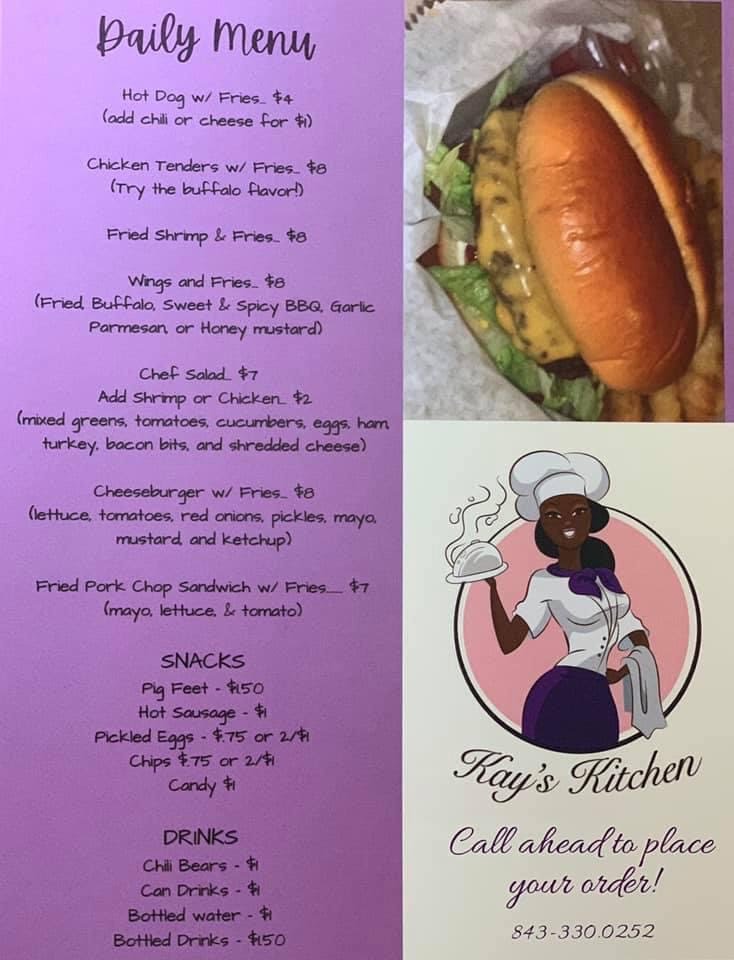 Daily Menu
Hot Dog w/ Fries... $4
(add chili or cheese for $1)
Chicken Tenders w/ Fries... $8
(Try the buffalo flavor!)
Fried Shrimp & Fries... $8
Wings and Fries... $8
(Fried, Buffalo, Sweet & Spicy BBQ, Garlic
Parmesan, or Honey mustard)
Chef Salad... $7
Add Shrimp or Chicken... $2
(mixed greens, tomatoes, cucumbers, eggs, ham,
turkey, bacon bits, and shredded cheese)
Cheeseburger w/ Fries... $8
(lettuce, tomatoes, red onions, pickles, mayo,
mustard, and ketchup)
Fried Pork Chop Sandwich w/ Fries...... $7
(mayo, lettuce, & tomato)
SNACKS
Pig Feet - $1.50
Hot Sausage - $1
Pickled Eggs - $.75 or 2/$1
Chips $.75 or 2/$1
Candy $1
DRINKS
Chili Bears - $1
Can Drinks - $1
Bottled water - $1
Bottled Drinks - $1.50
Kay's Kitchen
Call ahead to place
your order!
843-330.0252